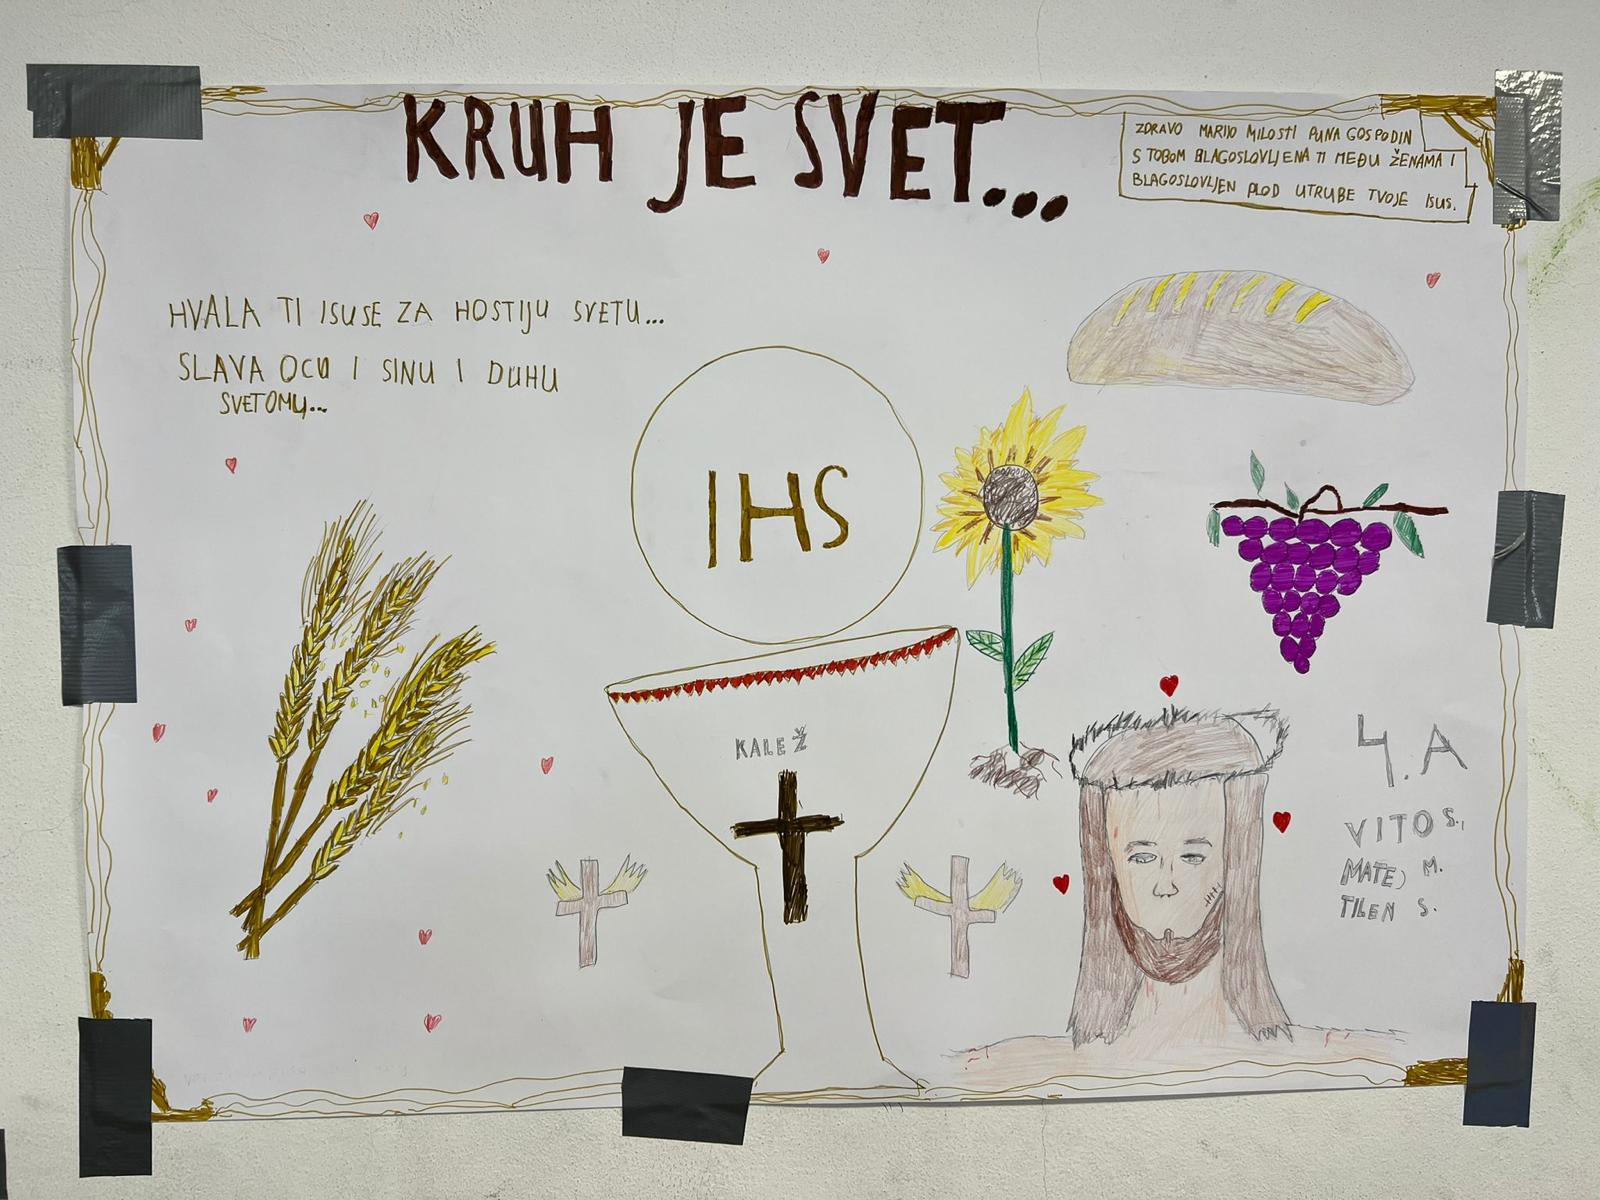 KRUH JE SVET...
ZDRAVO MARIJO MILOSTI PUNA GOSPODIN
S TOBOM BLAGOSLOVLJENA TI MEĐU ŽENAMA I
BLAGOSLOVLJEN PLOD UTRUBE TVOJE ISUS.
HVALA TI ISUSE ZA HOSTIJU SVETU...
SLAVA OCU I SINU I DUHU
SVETOMU...
IHS
KALEŽ
4.A
VITO S.,
MATEJ M.
TILEN S.